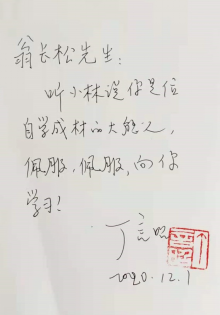 翁长松先生:
听小林说你是位
自学成材的大能人,
佩服、佩服,向你
学习!
丁言昭
2020.12.1